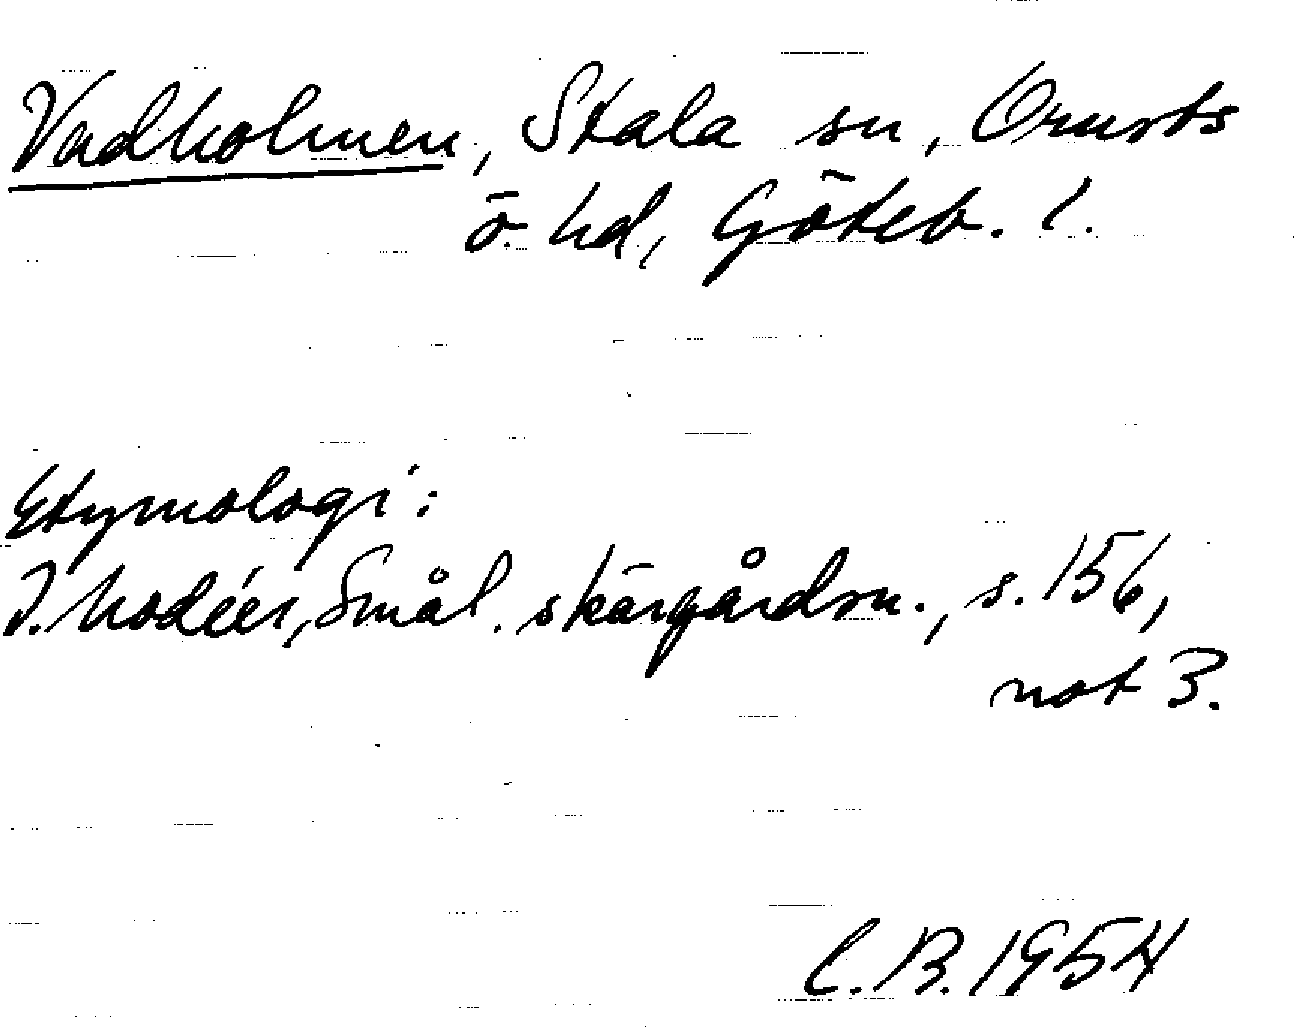 Vadholmen, Stala sn, Orusts
ö. hd, Göteb. l.
Etymologi:
I. Modéer, Smål. skärgårdsn., s. 156,
not 3.
C.B. 1954